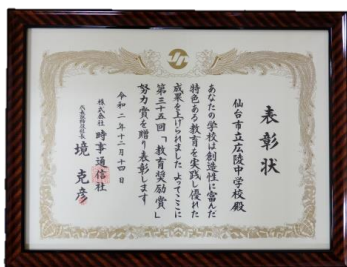 表彰状
仙台市立広陵中学校殿
あなたの学校は創造性に富んだ
特色ある教育を実践し優れた
成果を上げられました よってここに
第三十五回「教育奨励賞」
努力賞を贈り表彰します
令和二年十二月十四日
株式会社 時事通信社
代表取締役社長 境 克彦